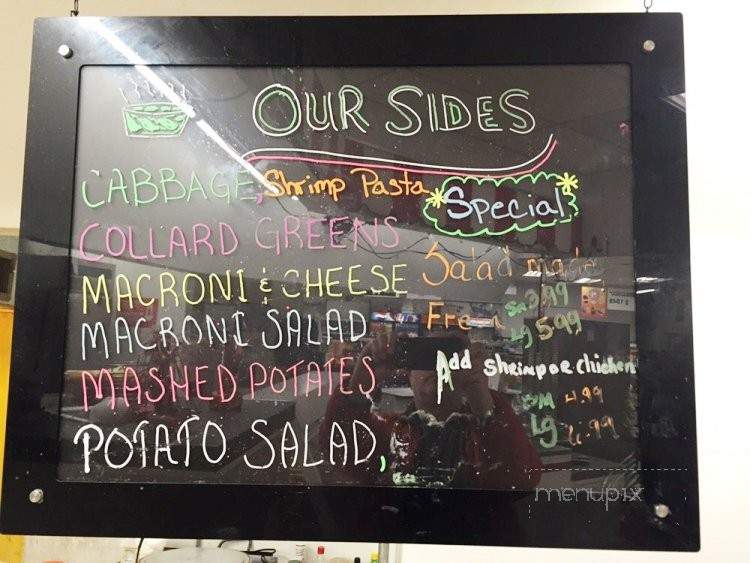 OUR SIDES
CABBAGE, Shrimp Pasta
COLLARD GREENS
MACRONI & CHEESE
MACRONI SALAD
MASHED POTATES
POTATO SALAD,
*Special*
Salad made
Fre
Sm 3.99
Lg 5.99
Add Shrimp or chicken
SM 4.99
Lg 6.99
menupix